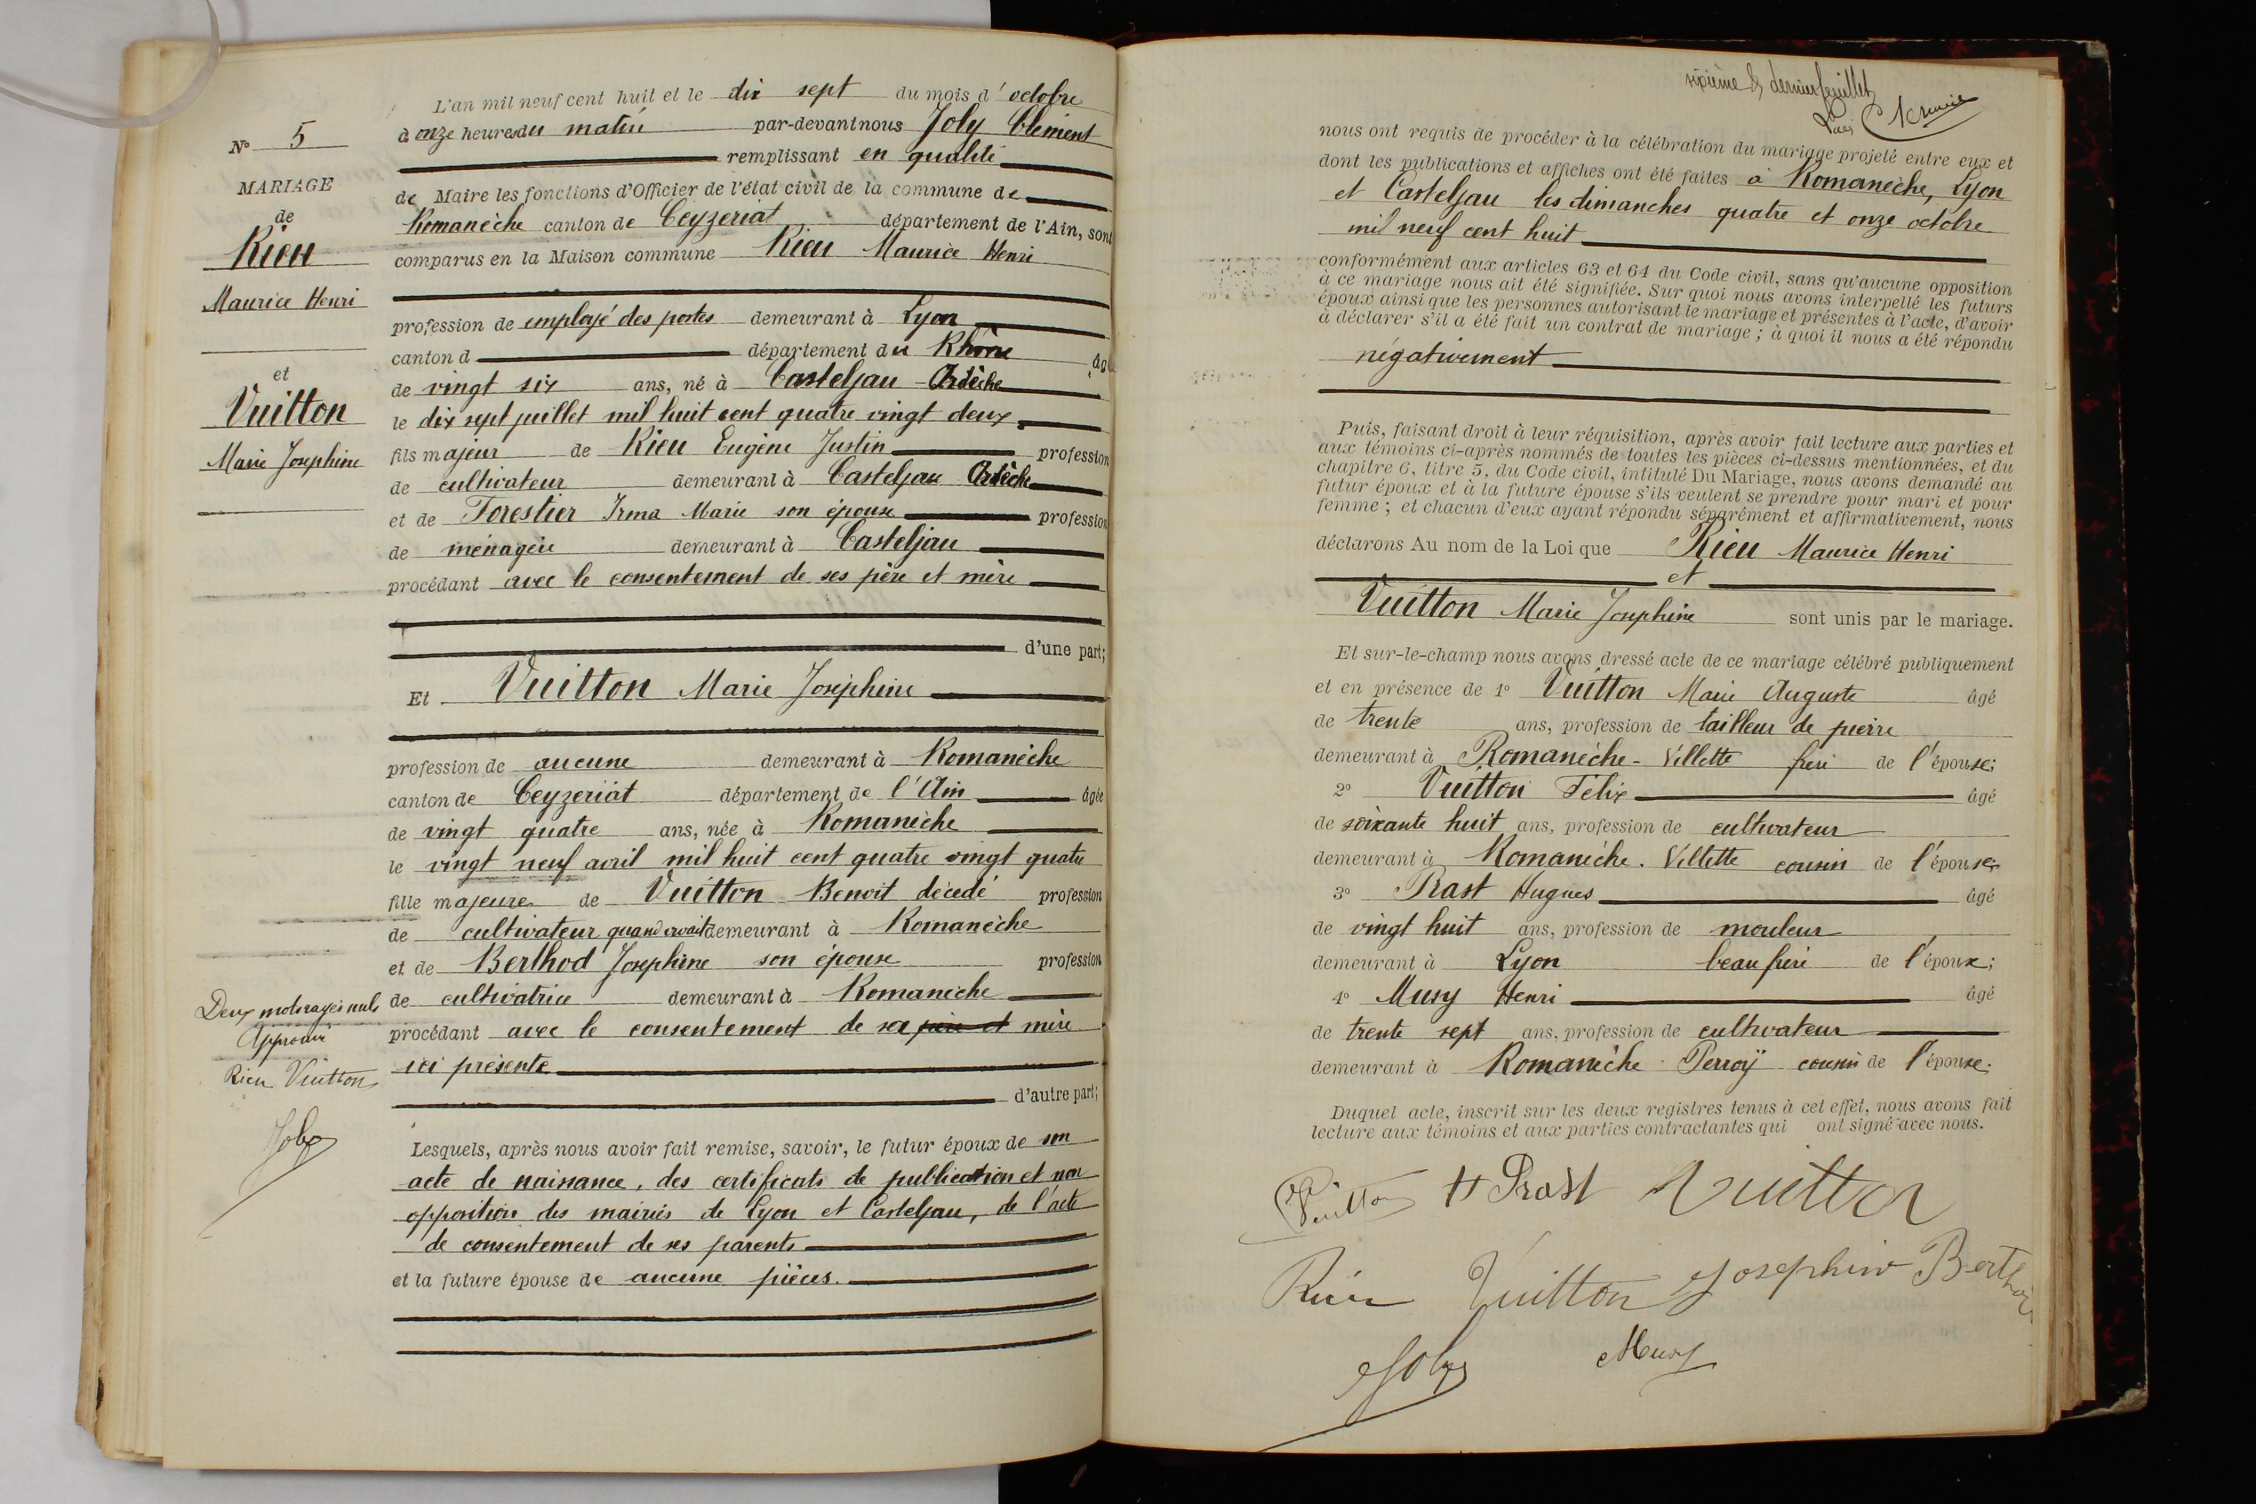 N° 5
MARIAGE
de
Rieu
Maurice Henri
et
Vuitton
Marie Josephine
L'an mil neuf cent huit et le dix sept du mois d'octobre
à onze heures du matin par-devant nous Joly Clément
remplissant en qualité
de Maire les fonctions d'Officier de l'état civil de la commune de
Romanèche canton de Ceyzeriat département de l'Ain, sont
comparus en la Maison commune Rieu Maurice Henri
profession de employé des postes demeurant à Lyon
canton d département du Rhône âgé
de vingt six ans, né à Casteljau - Ardèche
le dix sept juillet mil huit cent quatre vingt deux
fils majeur de Rieu Eugène Justin profession
de cultivateur demeurant à Casteljau Ardèche
et de Forestier Irma Marie son épouse profession
de ménagère demeurant à Casteljau
procédant avec le consentement de ses père et mère
d'une part;
Et Vuitton Marie Joséphine
profession de aucune demeurant à Romanèche
canton de Ceyzeriat département de l'Ain âgée
de vingt quatre ans, née à Romanèche
le vingt neuf avril mil huit cent quatre vingt quatre
fille majeure de Vuitton Benoit décédé profession
de cultivateur quand vivait demeurant à Romanèche
et de Berthod Josephine son épouse profession
de cultivatrice demeurant à Romanèche
procédant avec le consentement de sa père et mère
ici présente
d'autre part;
Deux mots rayés nuls
Approuvé
Rieu Vuitton
Joly
Lesquels, après nous avoir fait remise, savoir, le futur époux de son
acte de naissance, des certificats de publication et non
opposition des mairies de Lyon et Casteljau, de l'acte
de consentement de ses parents
et la future épouse de aucune pièces.
sixième & dernier feuillet
nous ont requis de procéder à la célébration du mariage projeté entre eux et
dont les publications et affiches ont été faites à Romanèche, Lyon
et Casteljau les dimanches quatre et onze octobre
mil neuf cent huit
conformément aux articles 63 et 64 du Code civil, sans qu'aucune opposition
à ce mariage nous ait été signifiée. Sur quoi nous avons interpellé les futurs
époux ainsi que les personnes autorisant le mariage et présentes à l'acte, d'avoir
à déclarer s'il a été fait un contrat de mariage ; à quoi il nous a été répondu
négativement
Puis, faisant droit à leur réquisition, après avoir fait lecture aux parties et
aux témoins ci-après nommés de toutes les pièces ci-dessus mentionnées, et du
chapitre 6, titre 5, du Code civil, intitulé Du Mariage, nous avons demandé au
futur époux et à la future épouse s'ils veulent se prendre pour mari et pour
femme ; et chacun d'eux ayant répondu séparément et affirmativement, nous
déclarons Au nom de la Loi que Rieu Maurice Henri
et
Vuitton Marie Josephine sont unis par le mariage.
Et sur-le-champ nous avons dressé acte de ce mariage célébré publiquement
et en présence de 1° Vuitton Marie Auguste âgé
de trente ans, profession de tailleur de pierre
demeurant à Romanèche - Villette frère de l'épouse;
2° Vuitton Félix âgé
de soixante huit ans, profession de cultivateur
demeurant à Romanèche. Villette cousin de l'épouse;
3° Prast Hugues âgé
de vingt huit ans, profession de mouleur
demeurant à Lyon beau frère de l'époux;
4° Musy Henri âgé
de trente sept ans, profession de cultivateur
demeurant à Romanèche Perroÿ cousin de l'épouse.
Duquel acte, inscrit sur les deux registres tenus à cet effet, nous avons fait
lecture aux témoins et aux parties contractantes qui ont signé avec nous.
Vuitton H Prast Vuitton
Rieu Vuitton Josephine Berthod
Joly Musy